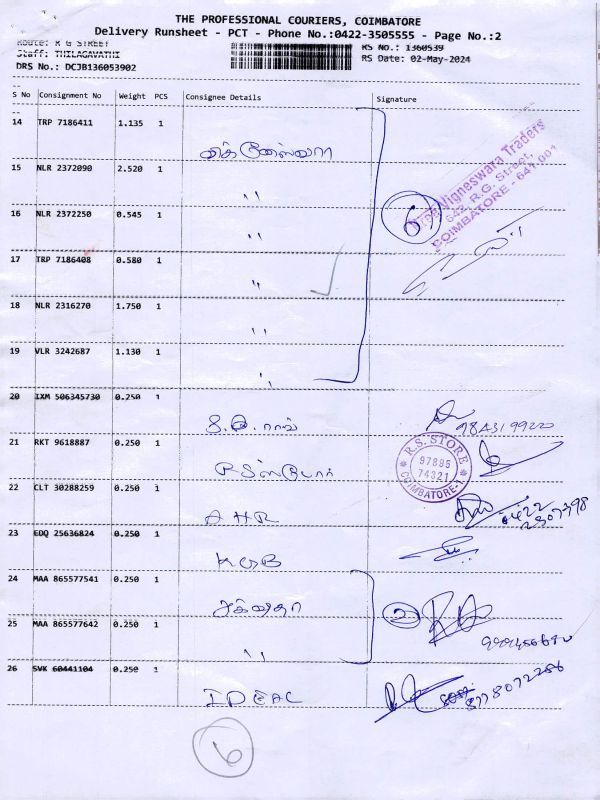 THE PROFESSIONAL COURIERS, COIMBATORE
Delivery Runsheet - PCT - Phone No.:0422-3505555 - Page No.:2
Route: R G STREET
Staff: THILAGAVATHI
DRS No.: DCJB136053902
RS No.: 1360539
RS Date: 02-May-2024
S No Consignment No Weight PCS Consignee Details Signature
14 TRP 7186411 1.135 1
15 NLR 2372090 2.520 1 ''
16 NLR 2372250 0.545 1 ''
17 TRP 7186408 0.580 1 ''
18 NLR 2316270 1.750 1 ''
19 VLR 3242687 1.130 1 ''
6
Vigneswara Traders
642, R.G. Street,
COIMBATORE - 641 001
20 IXM 506345730 0.250 1
21 RKT 9618887 0.250 1
R.S. STORE
97895
74321
COIMBATORE-1
22 CLT 30288259 0.250 1 AHR
23 EDQ 25636824 0.250 1
24 MAA 865577541 0.250 1
2
25 MAA 865577642 0.250 1 ''
26 SVK 60441104 0.250 1 IDEAL
6